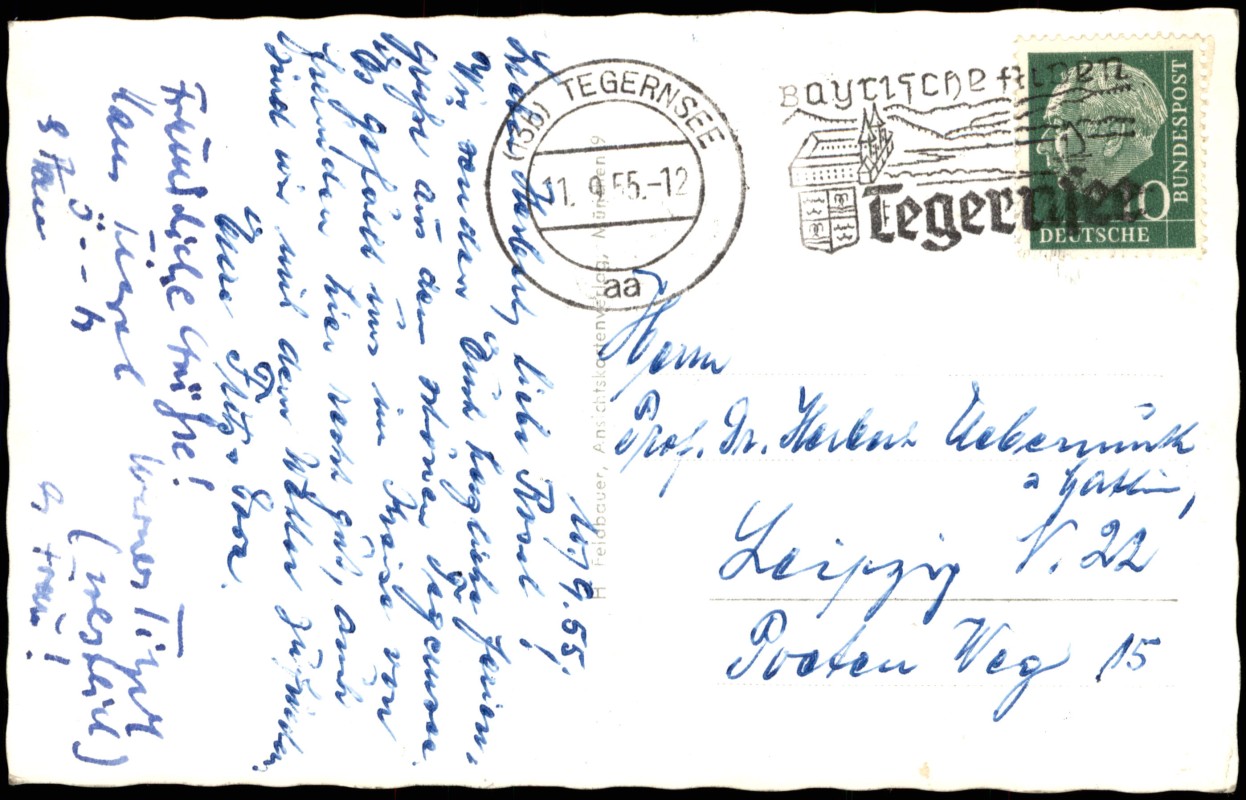 10. 9. 55.
Lieber Herbert, liebe Rosel!
Wir senden Euch herzliche Ferien-
grüße aus dem schönen Tegernsee.
Es gefällt uns im Kreise von
Freunden hier recht gut, auch
sind wir mit dem Wetter zufrieden.
Eure Fritz
Freundliche Grüße!
Werner
& Frau
(13b) TEGERNSEE
11. 9. 55.-12
aa
Bayrische Alpen
Tegernsee
DEUTSCHE
BUNDESPOST
10
H. Feldbauer, Ansichtskartenverlag, München 9
Herrn
Prof. Dr. Herbert Uebermuth
u. Gattin,
Leipzig N. 22
Poeten Weg 15